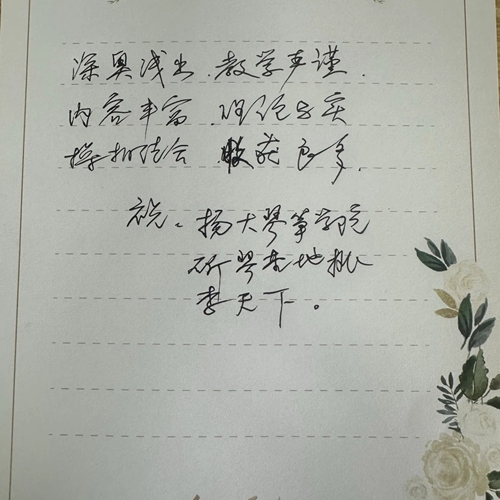 深奥浅出、教学严谨、
内容丰富、理论与实
操相结合 收获良多。
祝：扬大琴筝学院
斫琴基地桃
李天下。